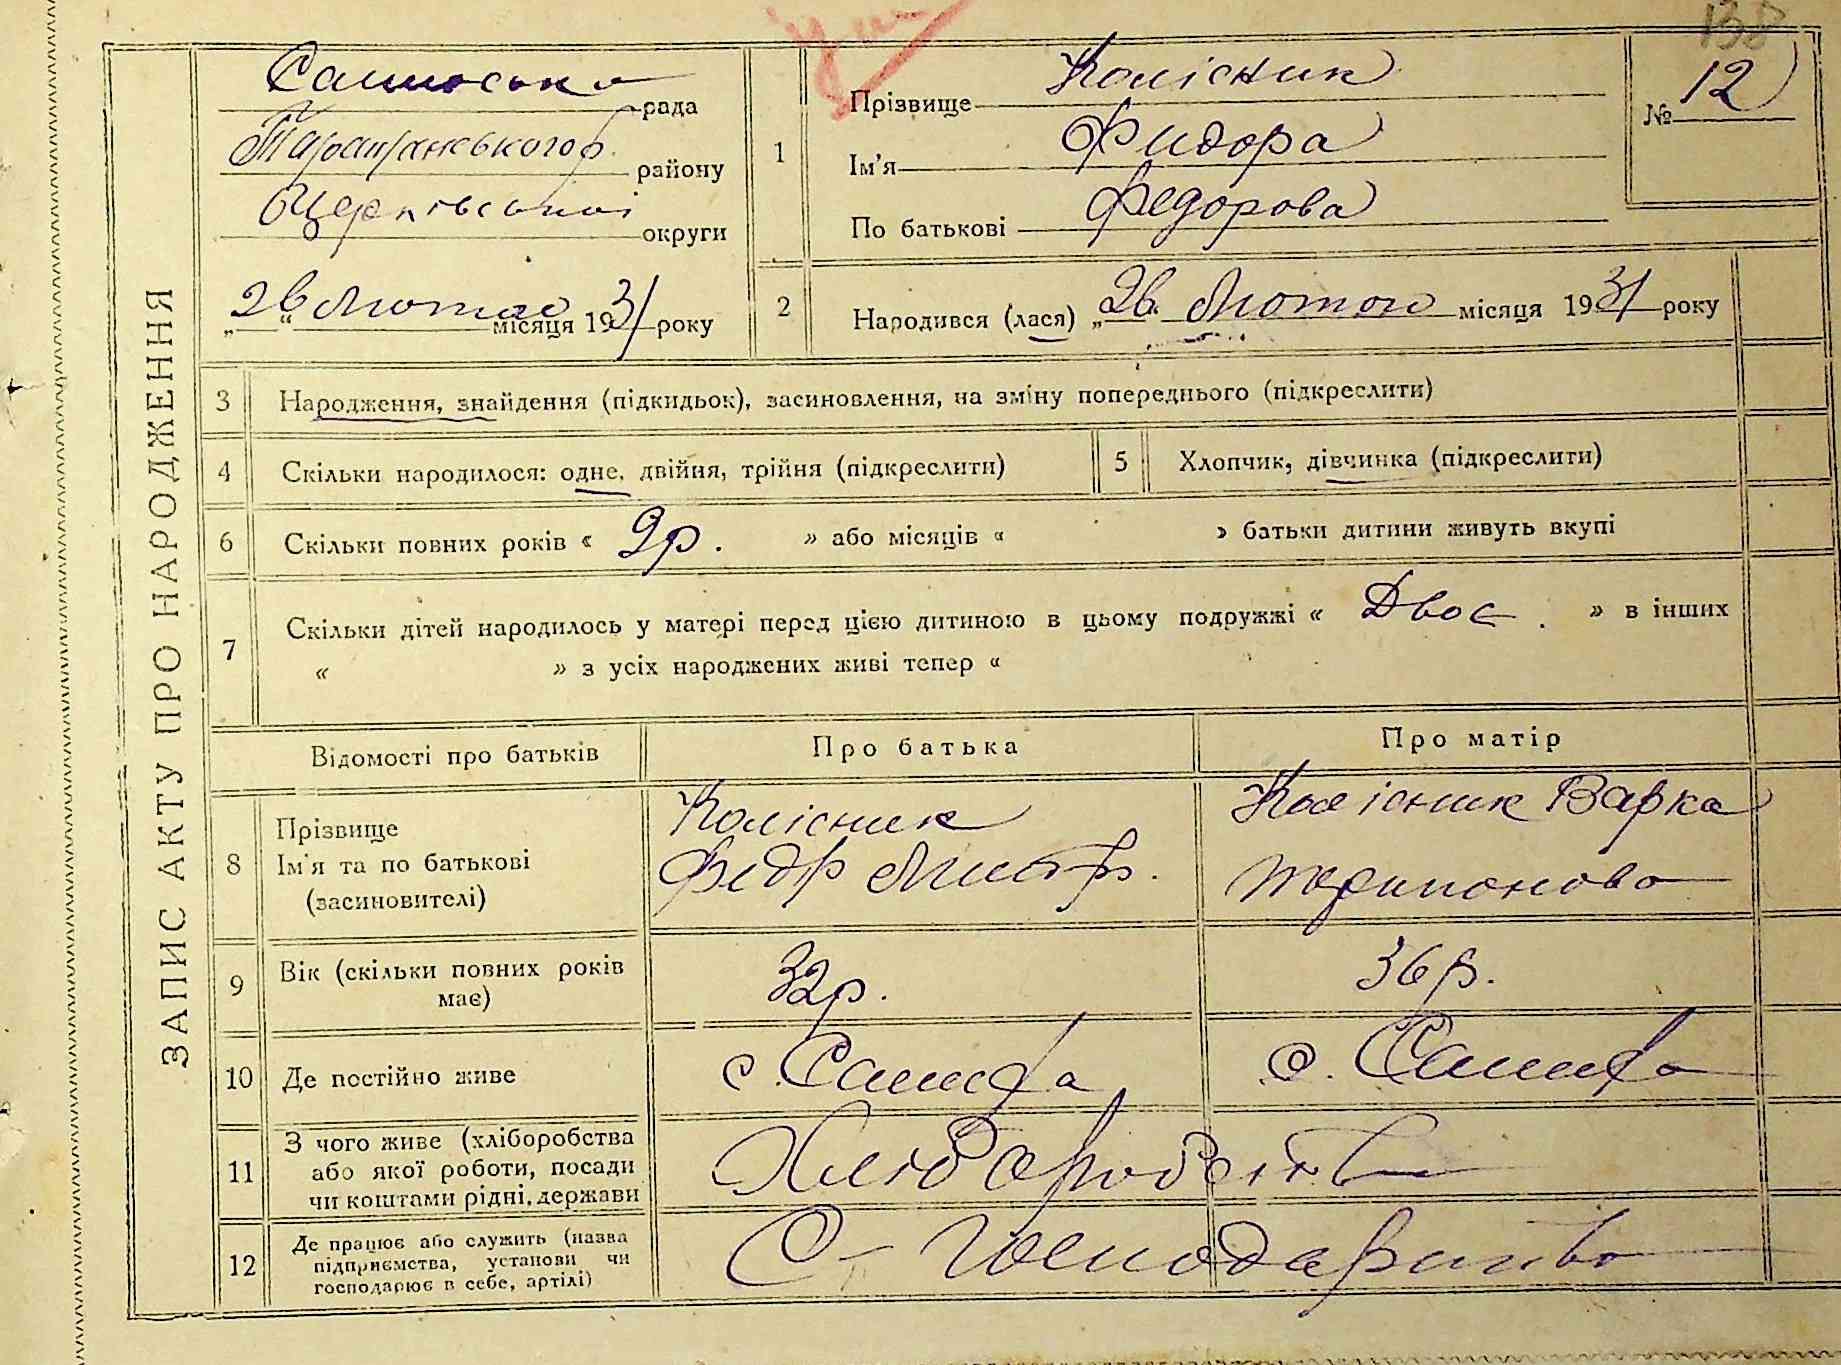 138
ЗАПИС АКТУ ПРО НАРОДЖЕННЯ
рада
Таращанського р. району
БЦерківської округи
„26“ Лютого місяця 1931 року
1
Прізвище Колісник
Ім'я Фидора
По батькові Федорова
№ 12
2 Народився (лася) „26“ Лютого місяця 1931 року
3 Народження, знайдення (підкидьок), засиновлення, на зміну попереднього (підкреслити)
4 Скільки народилося: одне, двійня, трійня (підкреслити)
5 Хлопчик, дівчинка (підкреслити)
6 Скільки повних років « 9р. » або місяців « » батьки дитини живуть вкупі
7 Скільки дітей народилось у матері перед цією дитиною в цьому подружжі « Двоє . » в інших
« » з усіх народжених живі тепер «
Відомості про батьків
Про батька
Про матір
8 Прізвище
Ім'я та по батькові
(засиновителі)
Колісник
Федір
Колісник Варка
9 Вік (скільки повних років
має)
32р.
36р.
10 Де постійно живе
с.
с.
11 З чого живе (хліборобства
або якої роботи, посади
чи коштами рідні, держави
Хліборобство
12 Де працює або служить (назва
підприємства, установи чи
господарює в себе, артілі)
С-господарство